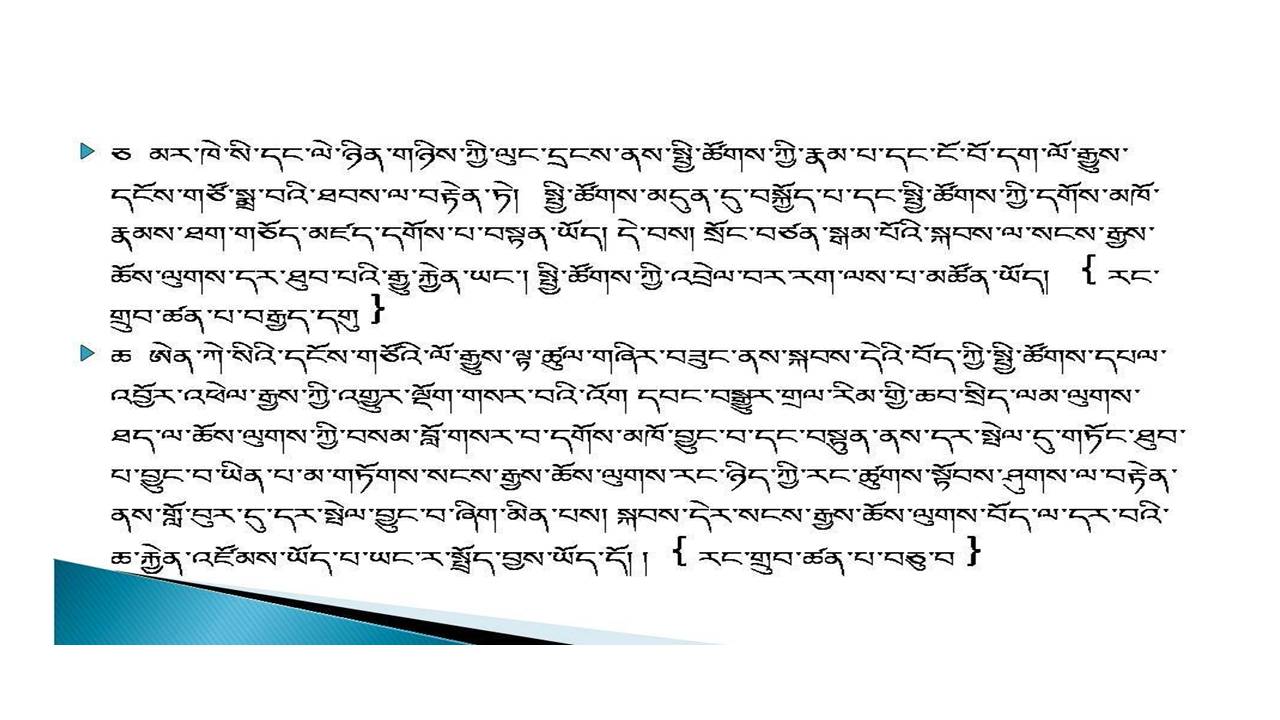 ཅ མར་ཁེ་སི་དང་ལེ་ཉིན་གཉིས་ཀྱི་ལུང་དྲངས་ནས་སྤྱི་ཚོགས་ཀྱི་རྣམ་པ་དང་ངོ་བོ་དག་ལོ་རྒྱུས་
དངོས་གཙོ་སྨྲ་བའི་ཐབས་ལ་བརྟེན་ཏེ། སྤྱི་ཚོགས་མདུན་དུ་བསྐྱོད་པ་དང་སྤྱི་ཚོགས་ཀྱི་དགོས་མཁོ་
རྣམས་ཐག་གཅོད་མཛད་དགོས་པ་བསྟན་ཡོད། དེ་བས། སྲོང་བཙན་སྒམ་པོའི་སྐབས་ལ་སངས་རྒྱས་
ཆོས་ལུགས་དར་ཐུབ་པའི་རྒྱུ་རྐྱེན་ཡང་། སྤྱི་ཚོགས་ཀྱི་འབྲེལ་བར་རག་ལས་པ་མཚོན་ཡོད། { རང་
གྲུབ་ཚན་པ་བརྒྱད་དགུ }
ཆ ཨེན་ཀེ་སིའི་དངོས་གཙོའི་ལོ་རྒྱུས་ལྟ་ཚུལ་གཞིར་བཟུང་ནས་སྐབས་དེའི་བོད་ཀྱི་སྤྱི་ཚོགས་དཔལ་
འབྱོར་འཕེལ་རྒྱས་ཀྱི་འགྱུར་ལྡོག་གསར་བའི་འོག དབང་བསྒྱུར་གྲལ་རིམ་གྱི་ཆབ་སྲིད་ལམ་ལུགས་
ཐད་ལ་ཆོས་ལུགས་ཀྱི་བསམ་བློ་གསར་བ་དགོས་མཁོ་བྱུང་བ་དང་བསྟུན་ནས་དར་སྤེལ་དུ་གཏོང་ཐུབ་
པ་བྱུང་བ་ཡིན་པ་མ་གཏོགས་སངས་རྒྱས་ཆོས་ལུགས་རང་ཉིད་ཀྱི་རང་ཚུགས་སྟོབས་ཤུགས་ལ་བརྟེན་
ནས་གློ་བུར་དུ་དར་སྤེལ་བྱུང་བ་ཞིག་མིན་པས། སྐབས་དེར་སངས་རྒྱས་ཆོས་ལུགས་བོད་ལ་དར་བའི་
ཆ་རྐྱེན་འཛོམས་ཡོད་པ་ཡང་ར་སྤྲོད་བྱས་ཡོད་དོ། ། { རང་གྲུབ་ཚན་པ་བཅུ་བ }